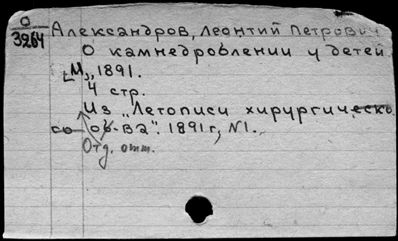 О
3264
Александров, Леонтий Петрович
О камнедроблении у детей.
[М], 1891.
4 стр.
Из „Летописи хирургическо
го об-ва". 1891 г., №1.
Отд. отт.